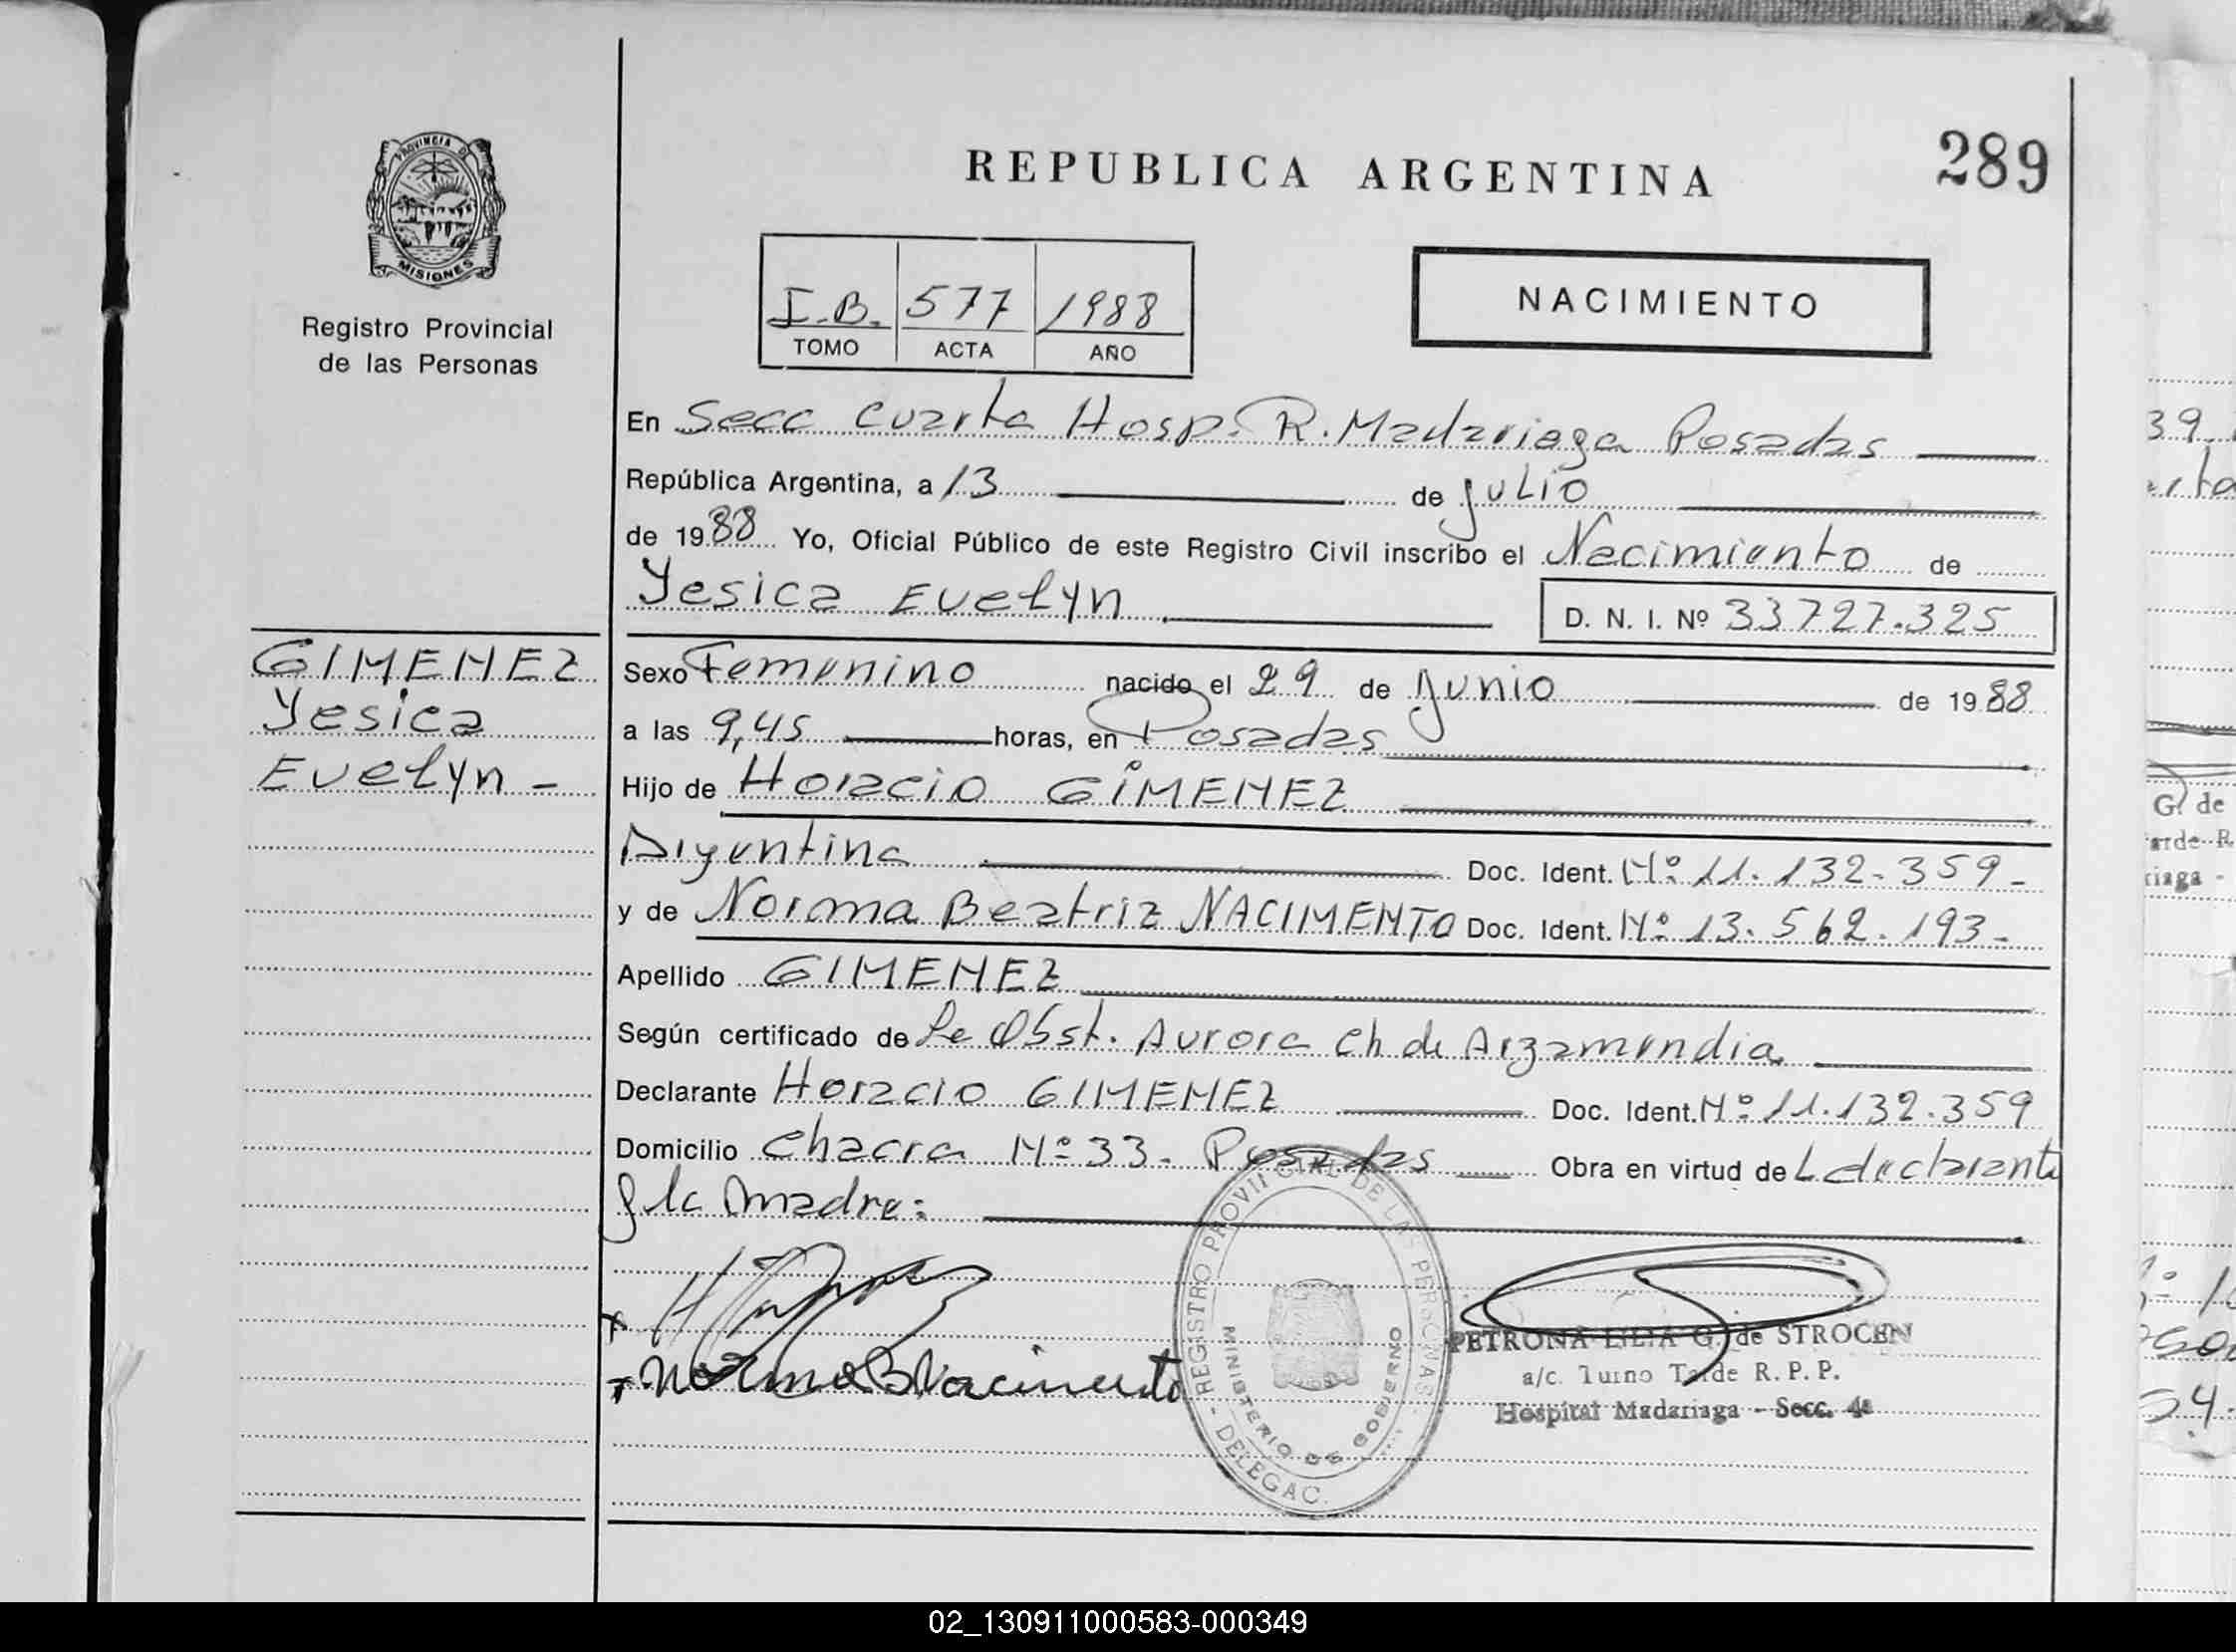 REPUBLICA ARGENTINA
289
PROVINCIA DE
MISIONES
Registro Provincial
de las Personas
I.B. 577 1988
TOMO ACTA AÑO
NACIMIENTO
En Secc Cuarta Hosp. R. Madariaga Posadas
República Argentina, a 13 de julio
de 1988 Yo, Oficial Público de este Registro Civil inscribo el Nacimiento de
Yesica Evelyn
D. N. I. Nº 33727.325
GIMENEZ
Yesica
Evelyn -
Sexo Femenino nacido el 29 de Junio de 1988
a las 9,45 horas, en Posadas
Hijo de Horacio GIMENEZ
Argentina Doc. Ident. Nº 11.132.359-
y de Norma Beatriz NACIMENTO Doc. Ident. Nº 13.562.193-
Apellido GIMENEZ
Según certificado de La Obst. Aurora Ch de Arzamendia
Declarante Horacio GIMENEZ Doc. Ident. Nº 11.132.359
Domicilio Chacra Nº 33. Posadas Obra en virtud de L declarante
y la madre:
Norma B Nacimento
REGISTRO PROVINCIAL DE LAS PERSONAS - DELEGAC.
MINISTERIO DE GOBIERNO
PETRONA LILIA G. de STROCEN
a/c. Turno Tarde R. P. P.
Hospital Madariaga - Secc. 4ª
39.
G. de
arde R.
riaga -
02_130911000583-000349